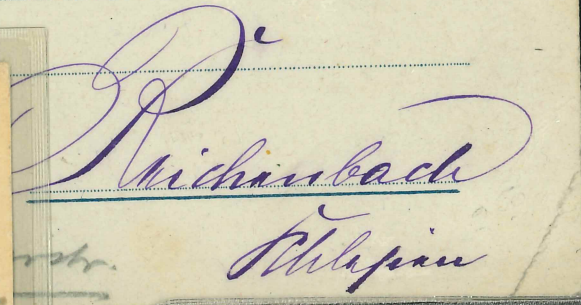 Reichenbach
Schlesien